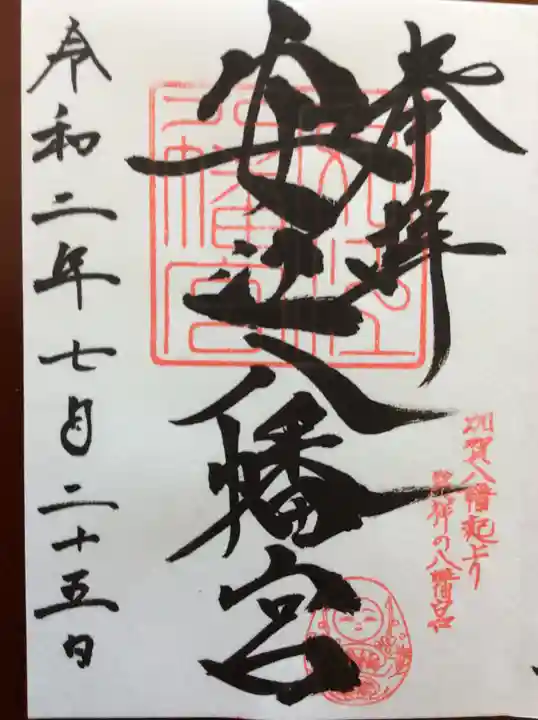 奉拝
安江八幡宮
加賀八幡起上り
発祥の八幡宮
令和二年七月二十五日